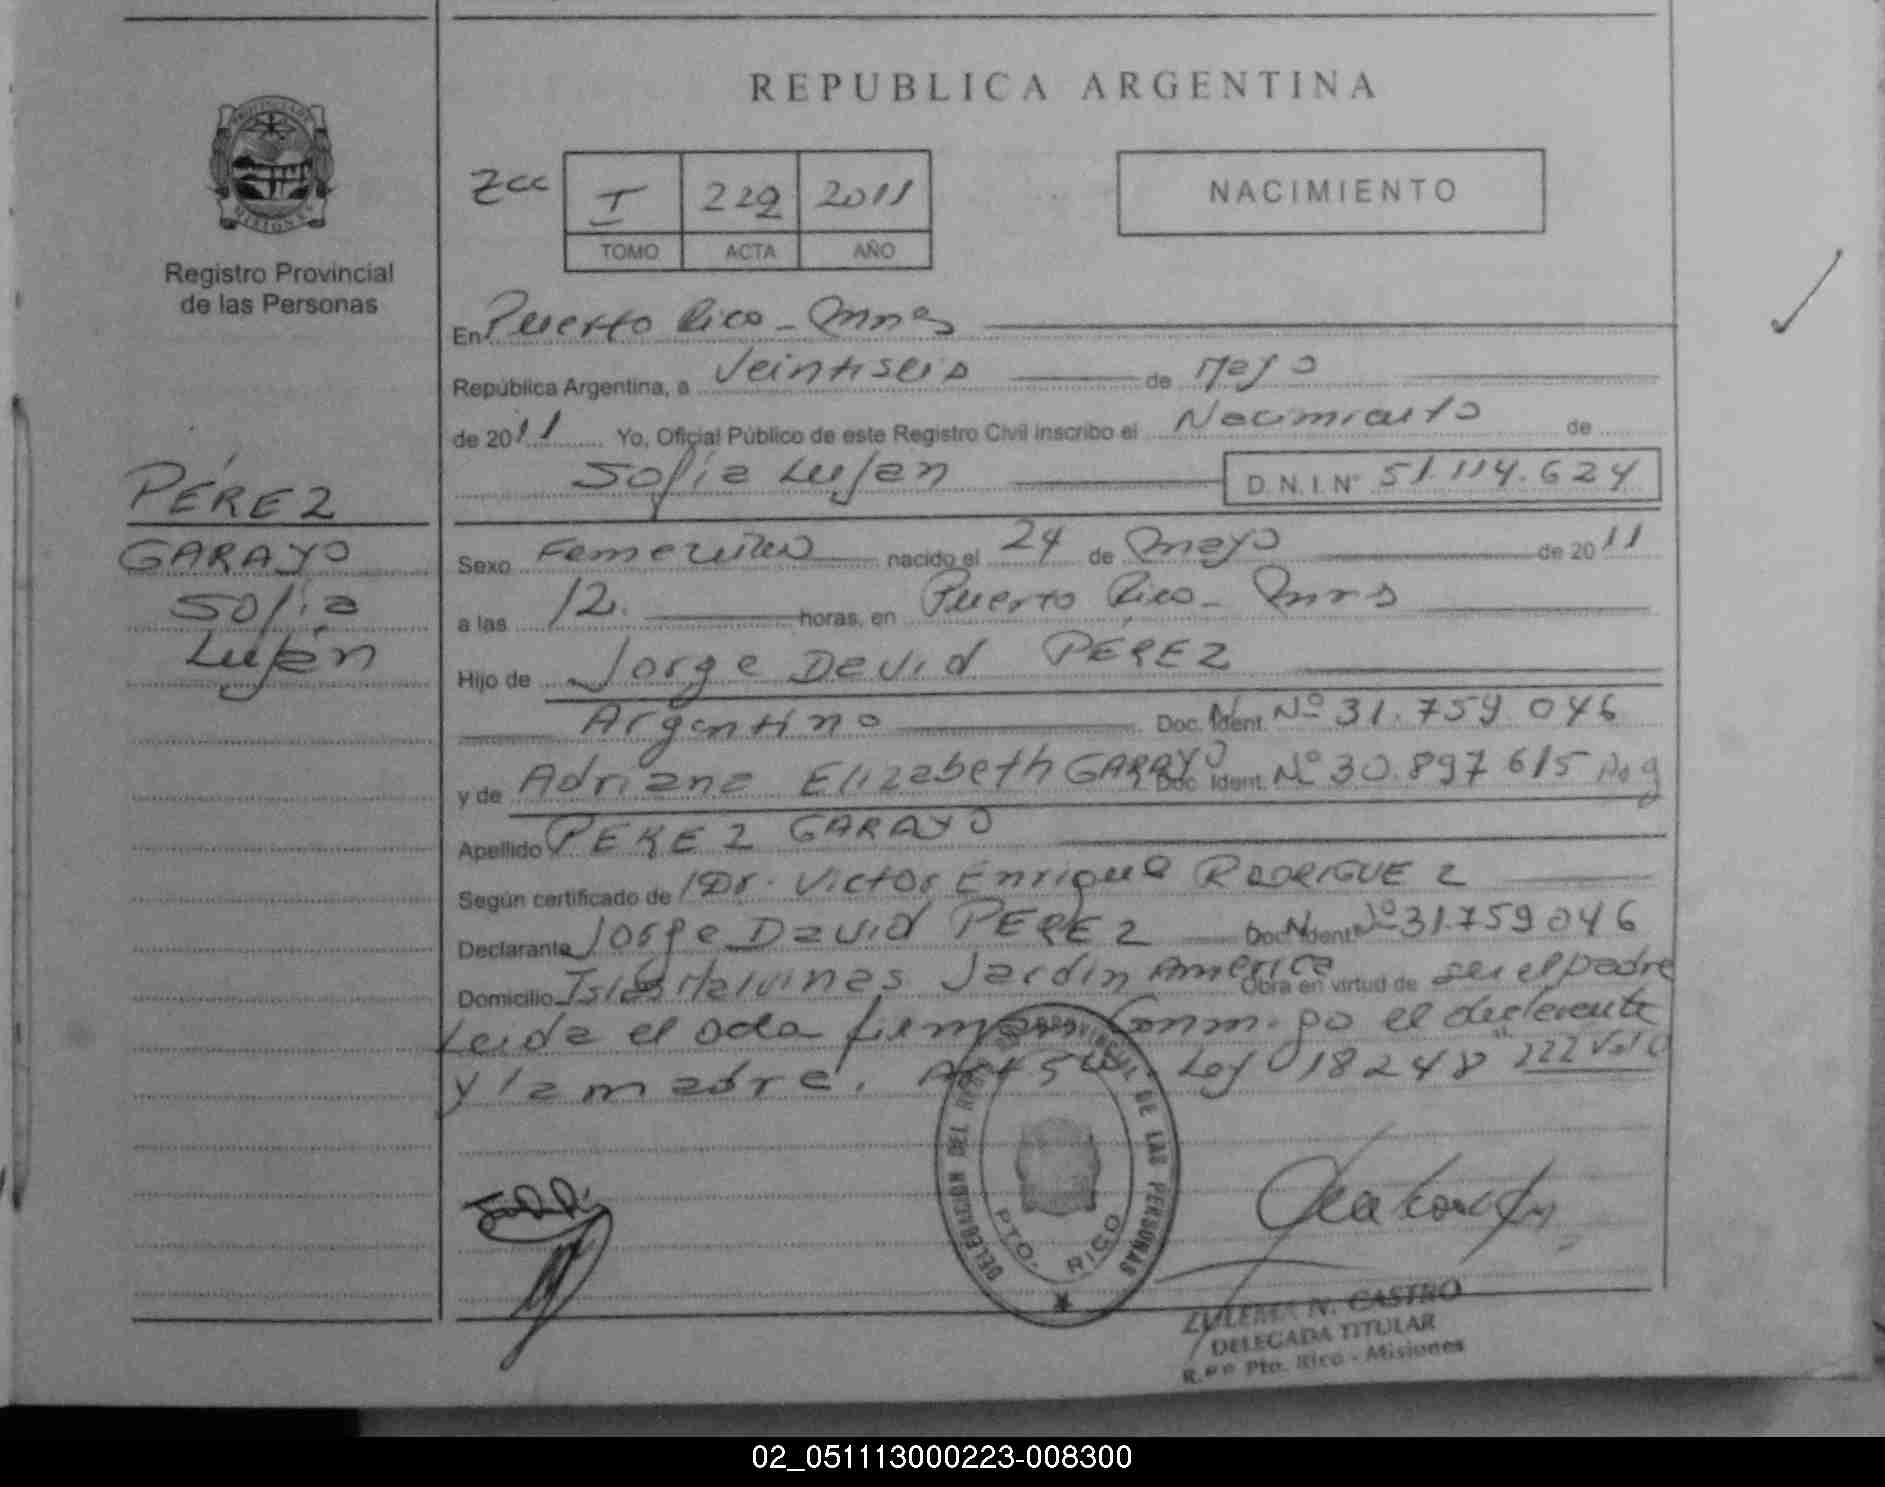 REPUBLICA ARGENTINA
PROVINCIA DE MISIONES
Registro Provincial
de las Personas
Zcc I 229 2011
TOMO ACTA AÑO
NACIMIENTO
En Puerto Rico - Mnes
República Argentina, a Veintiseis de Mayo
de 2011 Yo, Oficial Público de este Registro Civil inscribo el Nacimiento de
Sofía Luján D.N.I. Nº 51.114.624
PÉREZ
GARAYO
Sofía
Luján
Sexo Femenino nacido el 24 de mayo de 2011
a las 12. horas, en Puerto Rico - Mnes
Hijo de Jorge David PÉREZ
Argentino Doc. Ident. Nº 31.759.046
y de Adriana Elizabeth GARAYO Doc. Ident. Nº 30.897.615 Arg
Apellido PEREZ GARAYO
Según certificado de Dr. Victor Enrique RODRIGUEZ
Declarante Jorge David PEREZ Doc. Ident. Nº 31.759.046
Domicilio Islas Malvinas Jardín América Obra en virtud de ser el padre
Leída el acta firman conmigo el declarante
y la madre. Art 5º Ley 18248 "222 Vale
DELEGACION DEL REG. PROVINCIAL DE LAS PERSONAS
PTO. RICO
ZULEMA N. CASTRO
DELEGADA TITULAR
R.P.P. Pto. Rico - Misiones
02_051113000223-008300